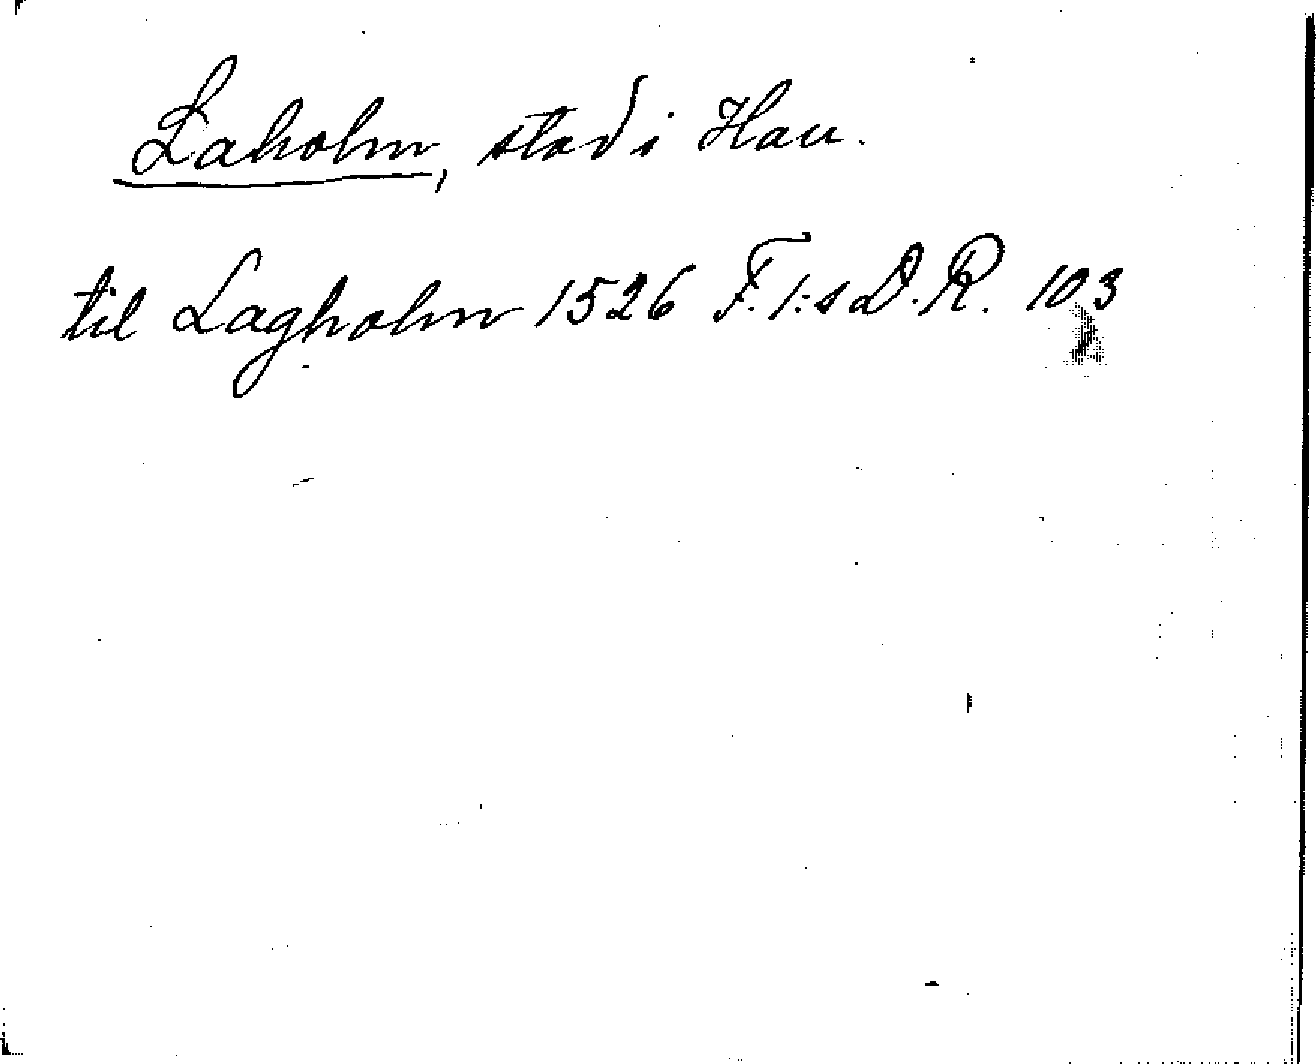 Laholm, stad i Hall.
til Lagholm 1526 F. 1:s D. R. 103